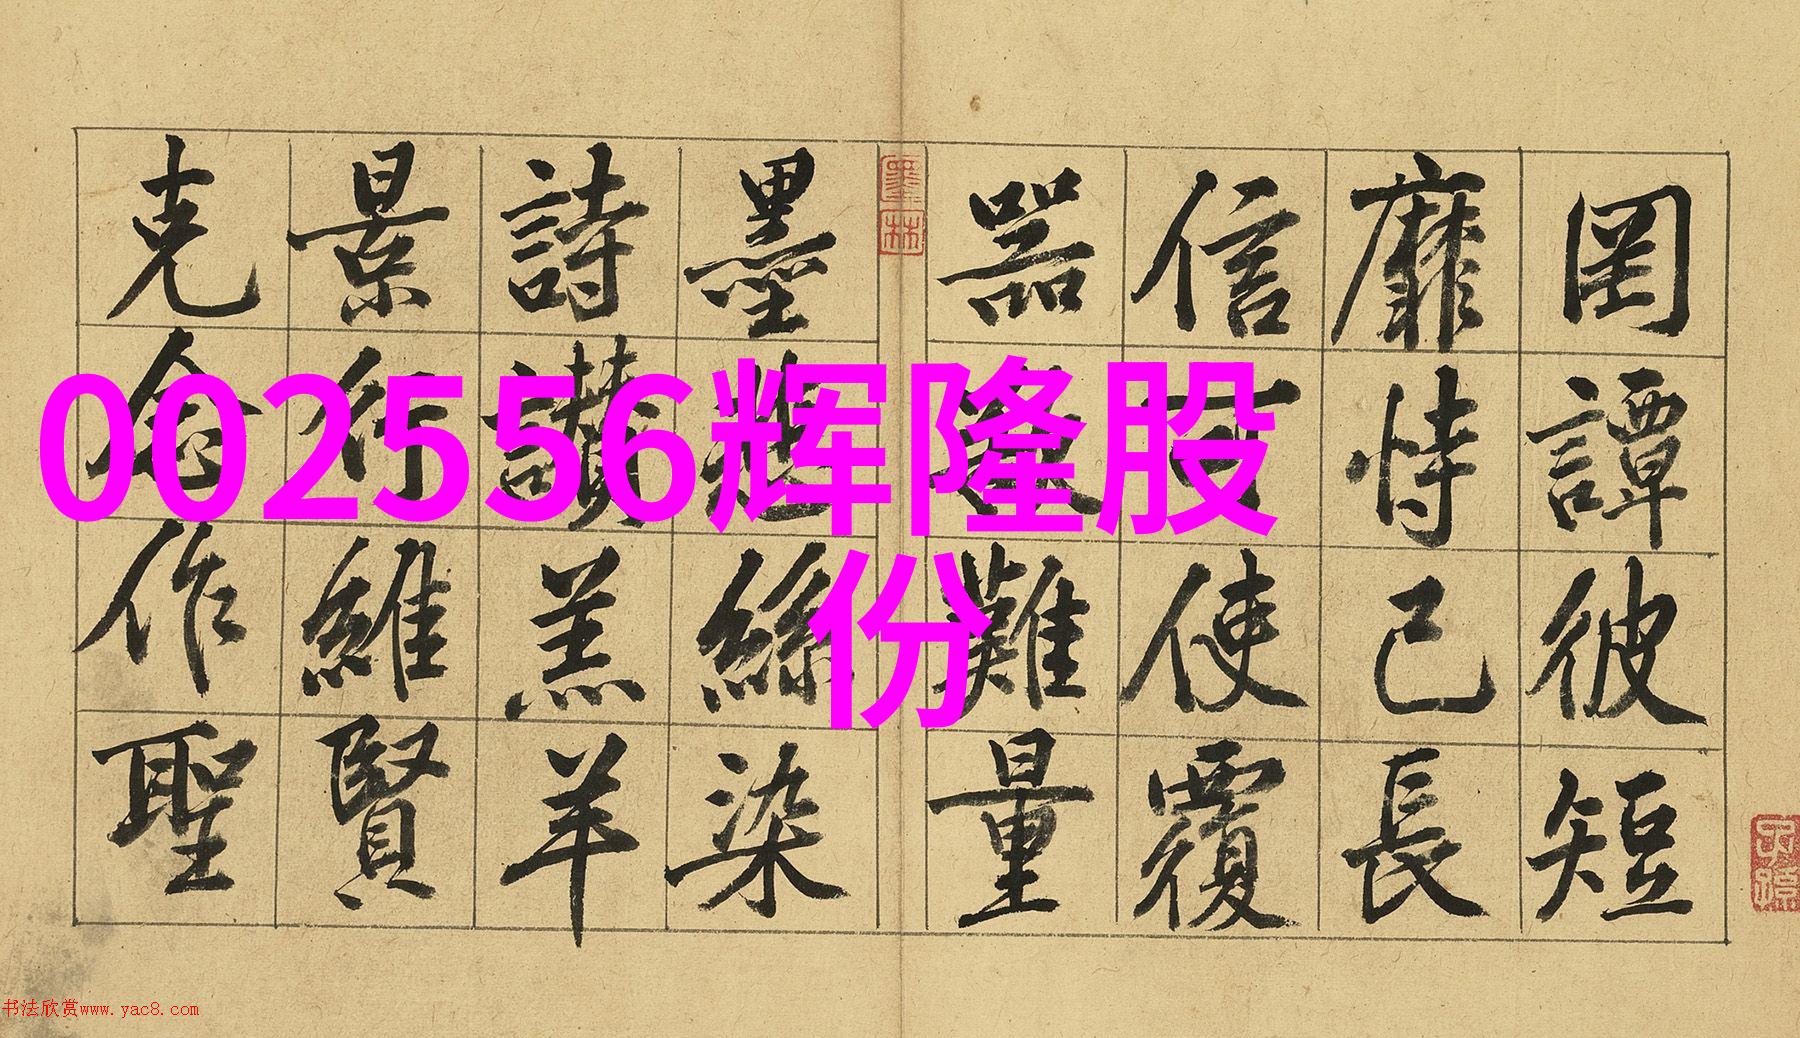 罔靡信器墨詩景克
談恃可欲悲讚行念
彼己使難絲羔維作
短長覆量染羊賢聖
002556辉隆股
份
墨林
书法欣赏www.yac8.com